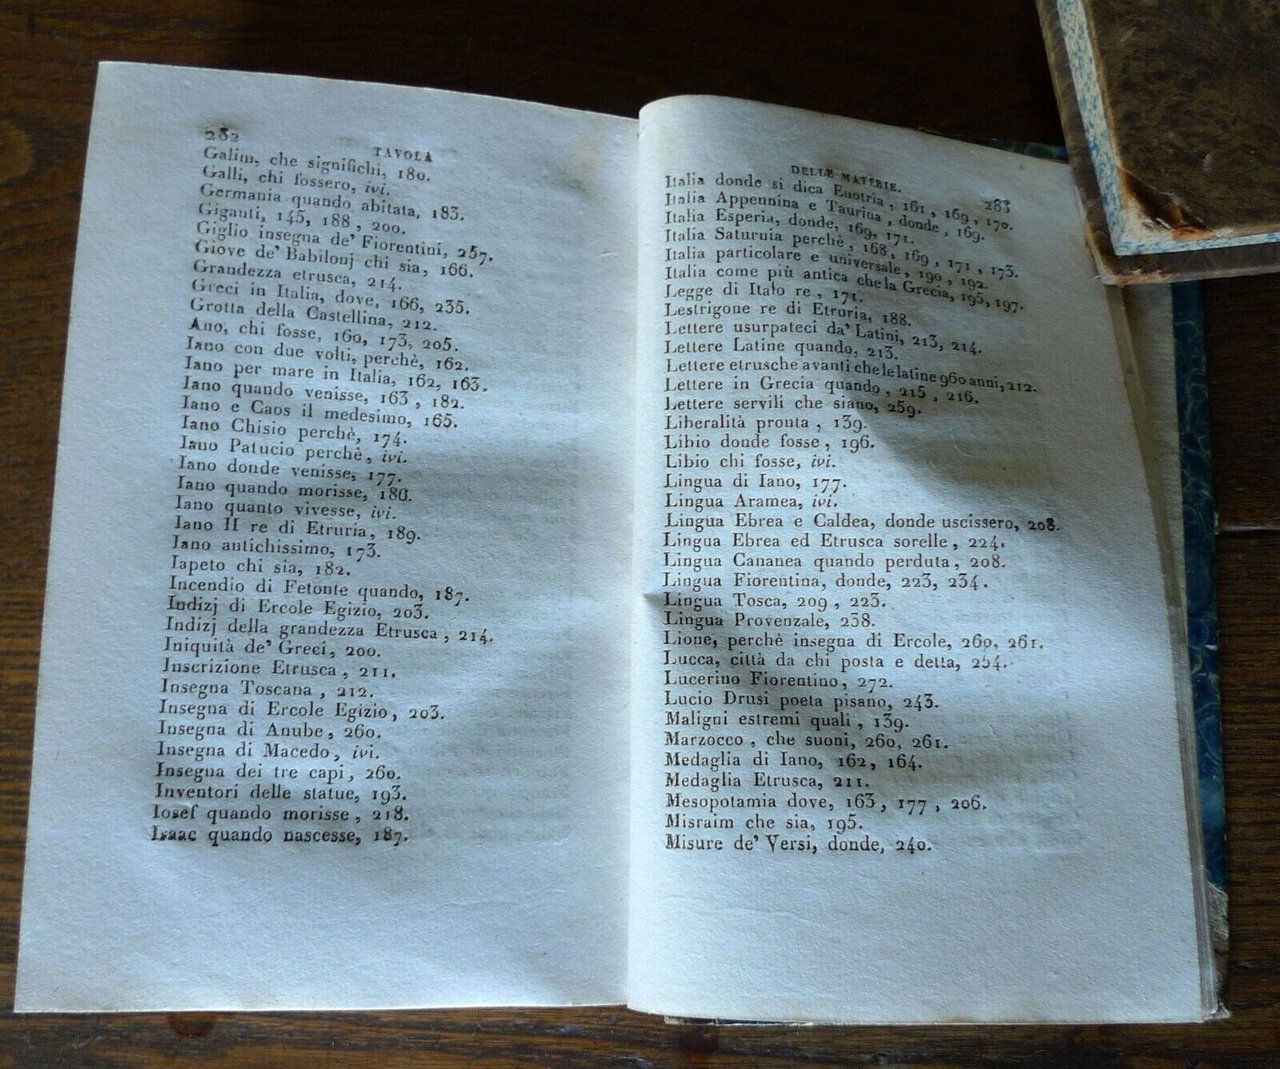 282
TAVOLA
Galim, che significhi, 180.
Galli, chi fossero, ivi.
Germania quando abitata, 183.
Giganti, 145, 188, 200.
Giglio insegna de' Fiorentini, 257.
Giove de' Babilonj chi sia, 166.
Grandezza etrusca, 214.
Greci in Italia, dove, 166, 235.
Grotta della Castellina, 212.
Ano, chi fosse, 160, 173, 205.
Iano con due volti, perchè, 162.
Iano per mare in Italia, 162, 163.
Iano quando venisse, 163, 182.
Iano e Caos il medesimo, 165.
Iano Chisio perchè, 174.
Iano Patucio perchè, ivi.
Iano donde venisse, 177.
Iano quando morisse, 186.
Iano quanto vivesse, ivi.
Iano II re di Etruria, 189.
Iano antichissimo, 173.
Iapeto chi sia, 182.
Incendio di Fetonte quando, 187.
Indizj di Ercole Egizio, 203.
Indizj della grandezza Etrusca, 214.
Iniquità de' Greci, 200.
Inscrizione Etrusca, 211.
Insegna Toscana, 212.
Insegna di Ercole Egizio, 203.
Insegna di Anube, 260.
Insegna di Macedo, ivi.
Insegna dei tre capi, 260.
Inventori delle statue, 193.
Iosef quando morisse, 218.
Isaac quando nascesse, 187.
DELLE MATERIE.
283
Italia donde si dica Enotria, 161, 169, 170.
Italia Appennina e Taurina, donde, 169.
Italia Esperia, donde, 169, 171.
Italia Saturnia perchè, 168, 169, 171, 173.
Italia particolare e universale, 190, 192.
Italia come più antica che la Grecia, 195, 197.
Legge di Italo re, 171.
Lestrigone re di Etruria, 188.
Lettere usurpateci da' Latini, 213, 214.
Lettere Latine quando, 213.
Lettere etrusche avanti che le latine 960 anni, 212.
Lettere in Grecia quando, 215, 216.
Lettere servili che siano, 259.
Liberalità pronta, 139.
Libio donde fosse, 196.
Libio chi fosse, ivi.
Lingua di Iano, 177.
Lingua Aramea, ivi.
Lingua Ebrea e Caldea, donde uscissero, 208.
Lingua Ebrea ed Etrusca sorelle, 224.
Lingua Cananea quando perduta, 208.
Lingua Fiorentina, donde, 223, 234.
Lingua Tosca, 209, 223.
Lingua Provenzale, 238.
Lione, perchè insegna di Ercole, 260, 261.
Lucca, città da chi posta e detta, 254.
Lucerino Fiorentino, 272.
Lucio Drusi poeta pisano, 243.
Maligni estremi quali, 139.
Marzocco, che suoni, 260, 261.
Medaglia di Iano, 162, 164.
Medaglia Etrusca, 211.
Mesopotamia dove, 163, 177, 206.
Misraim che sia, 195.
Misure de' Versi, donde, 240.